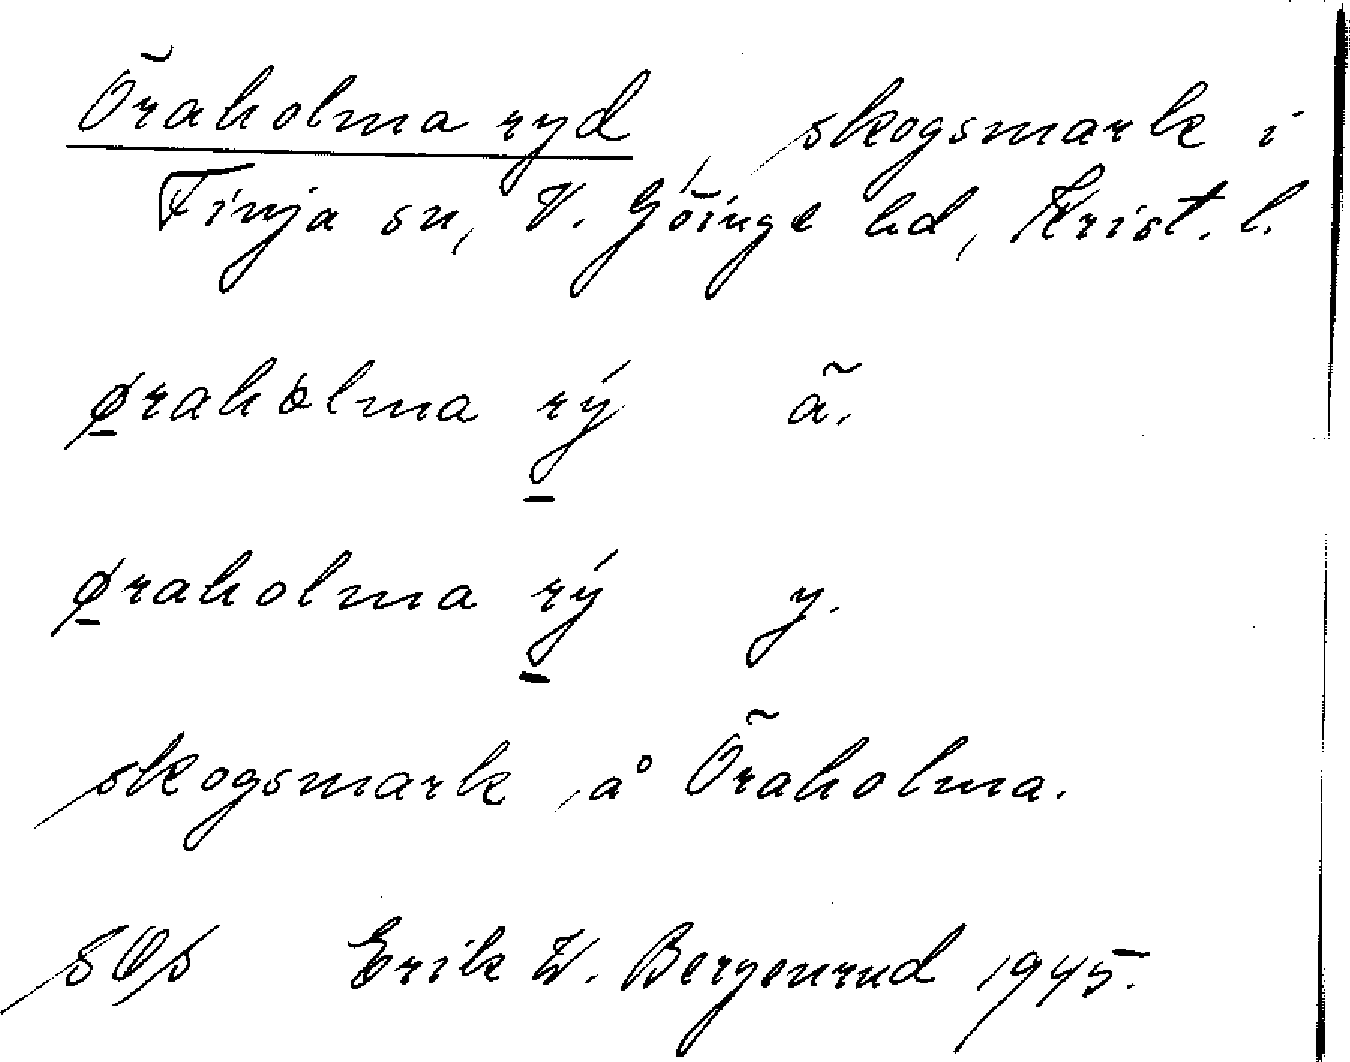 Öraholma ryd skogsmark i
Finja sn, V. Göinge hd, Krist. l.
ø̱raholma rý̱ ä.
ø̱raholma rý̱ y.
skogsmark å Öraholma.
Erik W. Bergenrud 1945.